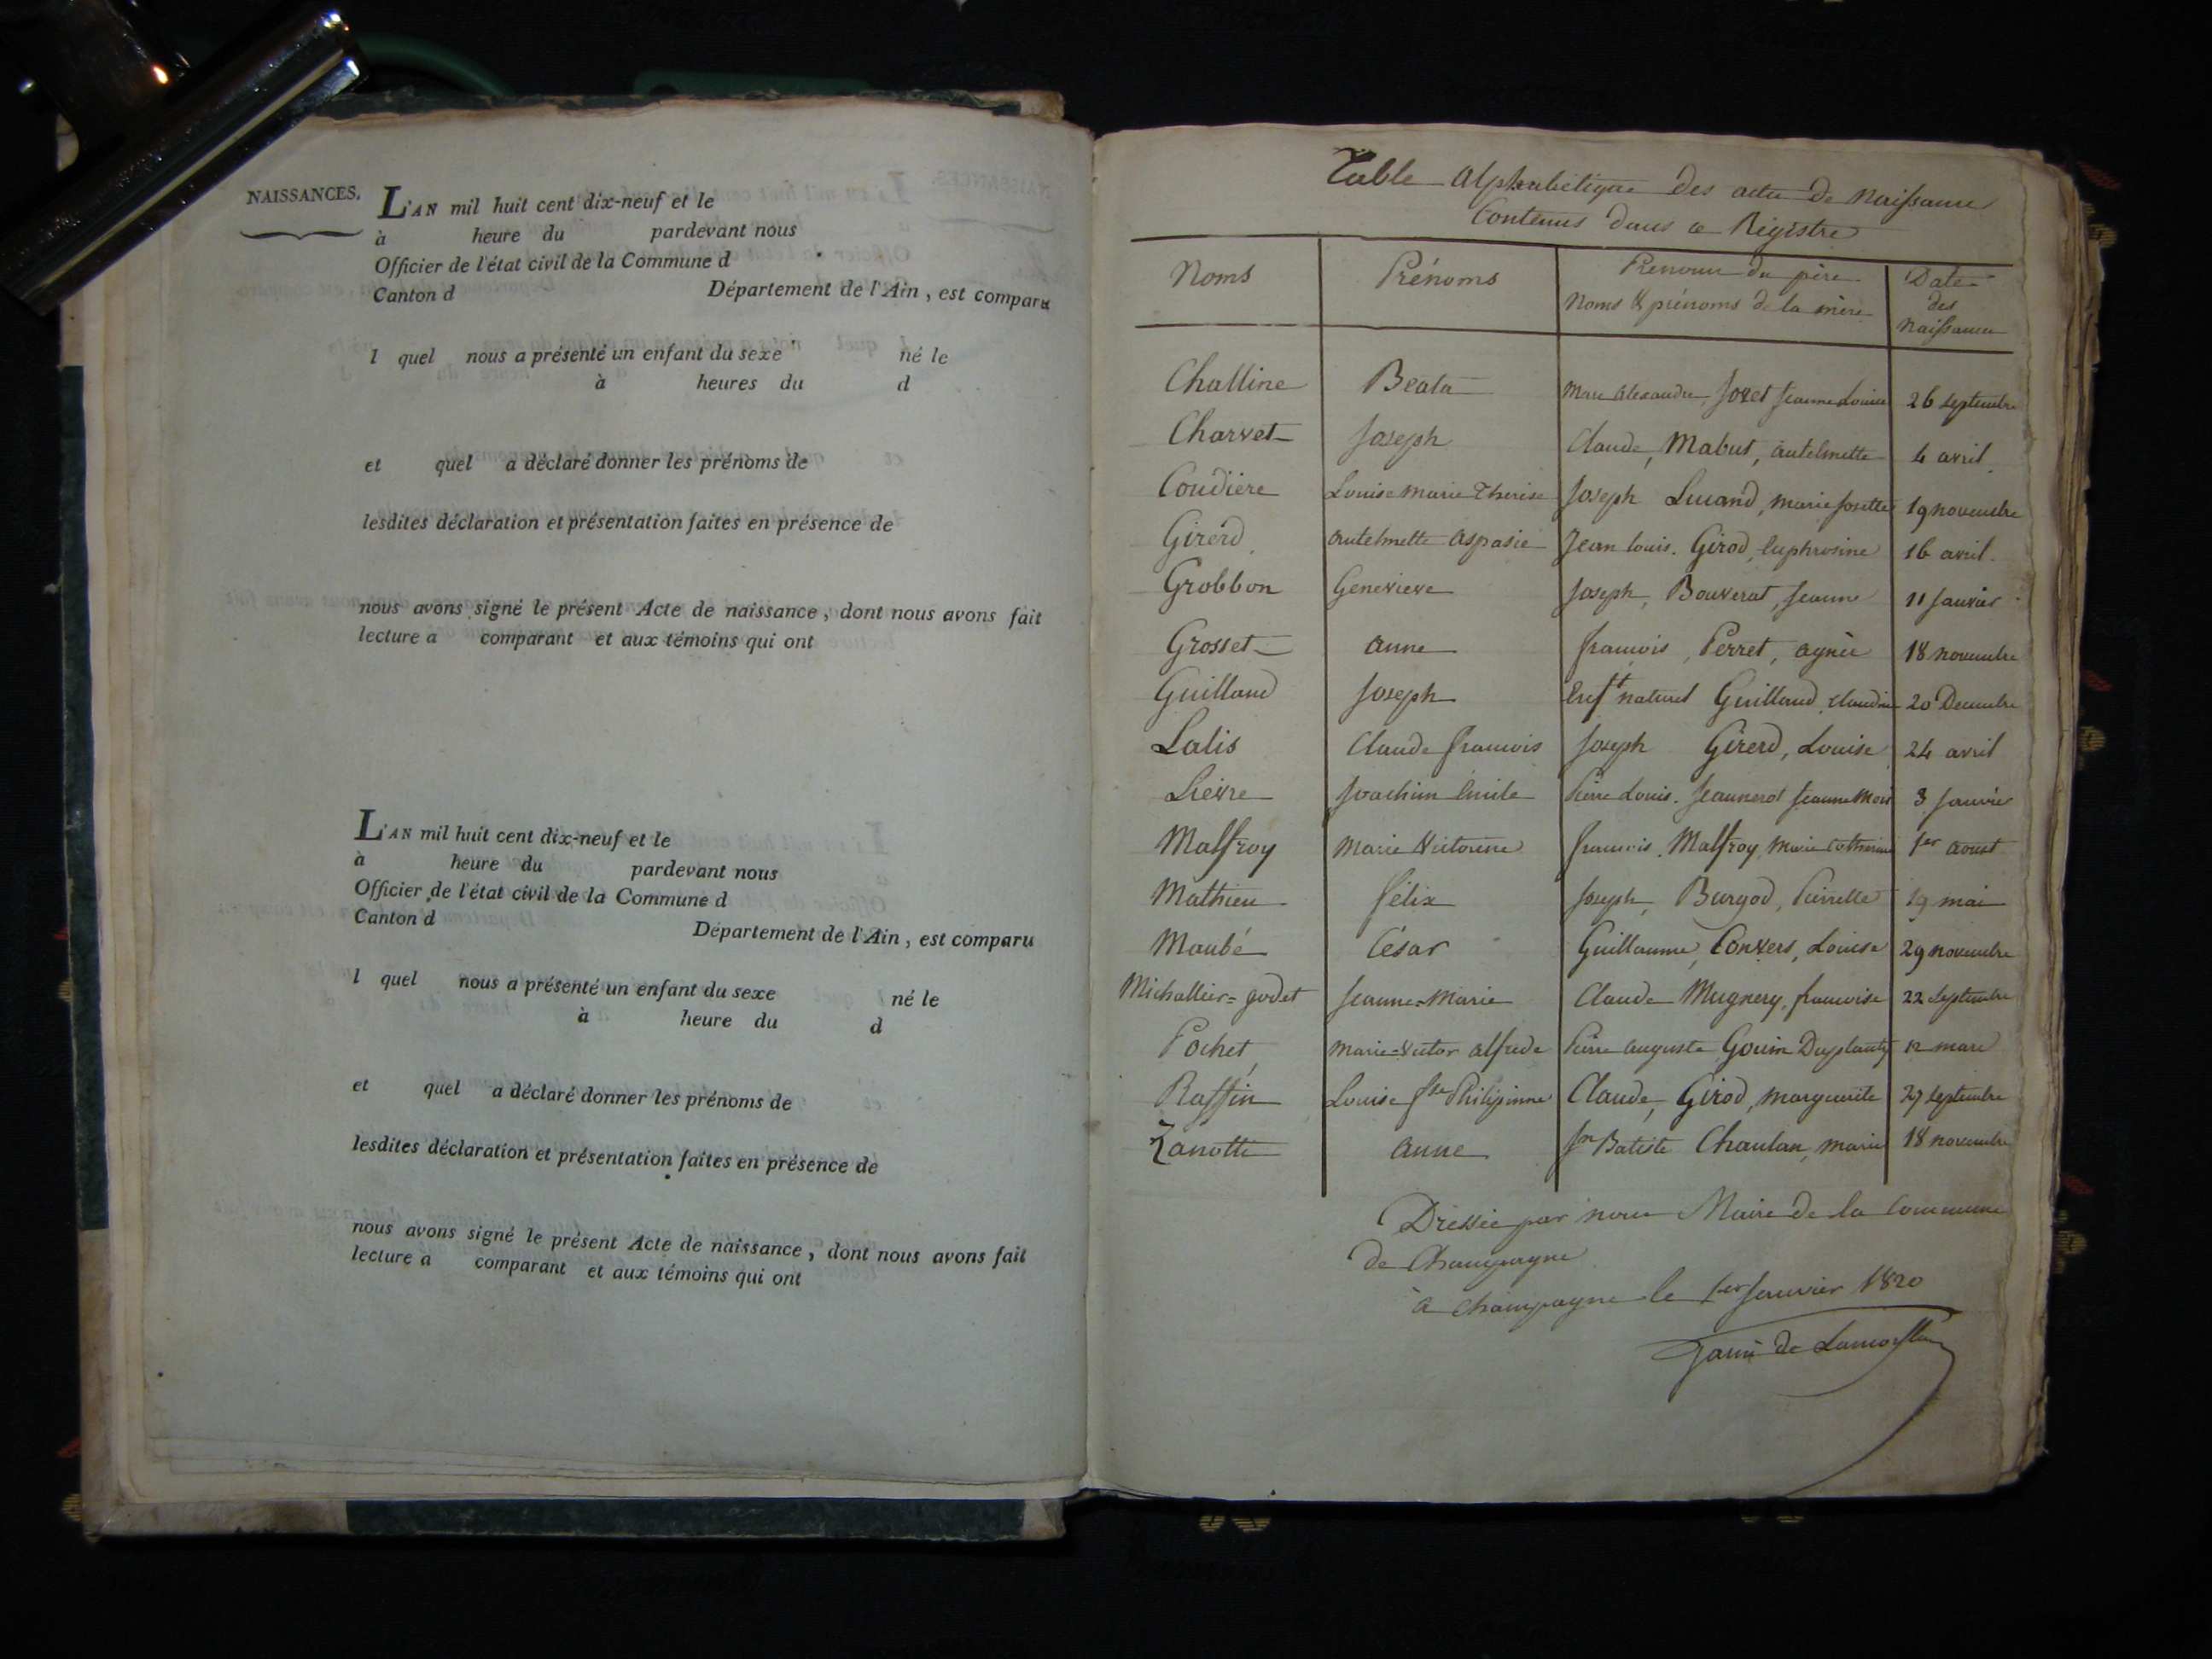 NAISSANCES.
L'AN mil huit cent dix-neuf et le
à heure du pardevant nous
Officier de l'état civil de la Commune d
Canton d Département de l'Ain, est comparu
l quel nous a présenté un enfant du sexe né le
à heures du d
et quel a déclaré donner les prénoms de
lesdites déclaration et présentation faites en présence de
nous avons signé le présent Acte de naissance, dont nous avons fait
lecture a comparant et aux témoins qui ont
L'AN mil huit cent dix-neuf et le
à heure du pardevant nous
Officier de l'état civil de la Commune d
Canton d Département de l'Ain, est comparu
l quel nous a présenté un enfant du sexe né le
à heure du d
et quel a déclaré donner les prénoms de
lesdites déclaration et présentation faites en présence de
nous avons signé le présent Acte de naissance, dont nous avons fait
lecture à comparant et aux témoins qui ont
Table alphabétique des actes de Naissances
Contenus dans ce Régistre
Noms Prénoms Prénoms du père Noms & prénoms de la mère Date des Naissances
Challine Beata Marc alexandre, Jozet Jeanne Louise 26 septembre
Charvet Joseph Claude, Mabut, antelmette 4 avril
Coudière Louise marie Therese Joseph Luiand, marie Josette 19 novembre
Girerd antelmette aspasie Jean louis. Girod, Euphrosine 16 avril
Grobbon Genevieve Joseph, Bouverat, Jeanne 11 Janvier
Grosset anne françois, Perret, agnès 18 novembre
Guilland Joseph Enft naturel Guilland, claudine 20 Decembre
Lalis Claude françois Joseph Girerd, Louise 24 avril
Lievre Joachim Emile Pierre Louis. Jeannerot Jeanne 3 Janvier
Malfroy Marie Victorine françois. Malfroy, Marie Catherine 1er aoust
Mathieu félix Joseph, Burgod, Pierrette 19 mai
Maubé César Guillaume, Convers, Louise 29 novembre
Michallier=godet Jeanne=Marie Claude Mugnery, françoise 22 Septembre
Pochet Marie=Victor alfrede Pierre auguste Gouin Duplanty 12 mars
Raffin Louise fse Philippinne Claude, Girod, marguerite 27 septembre
Zanotti anne Jn Batiste Chaulan, marie 18 novembre
Dressée par nous Maire de la Commune
de Champagne
à Champagne le 1er Janvier 1820